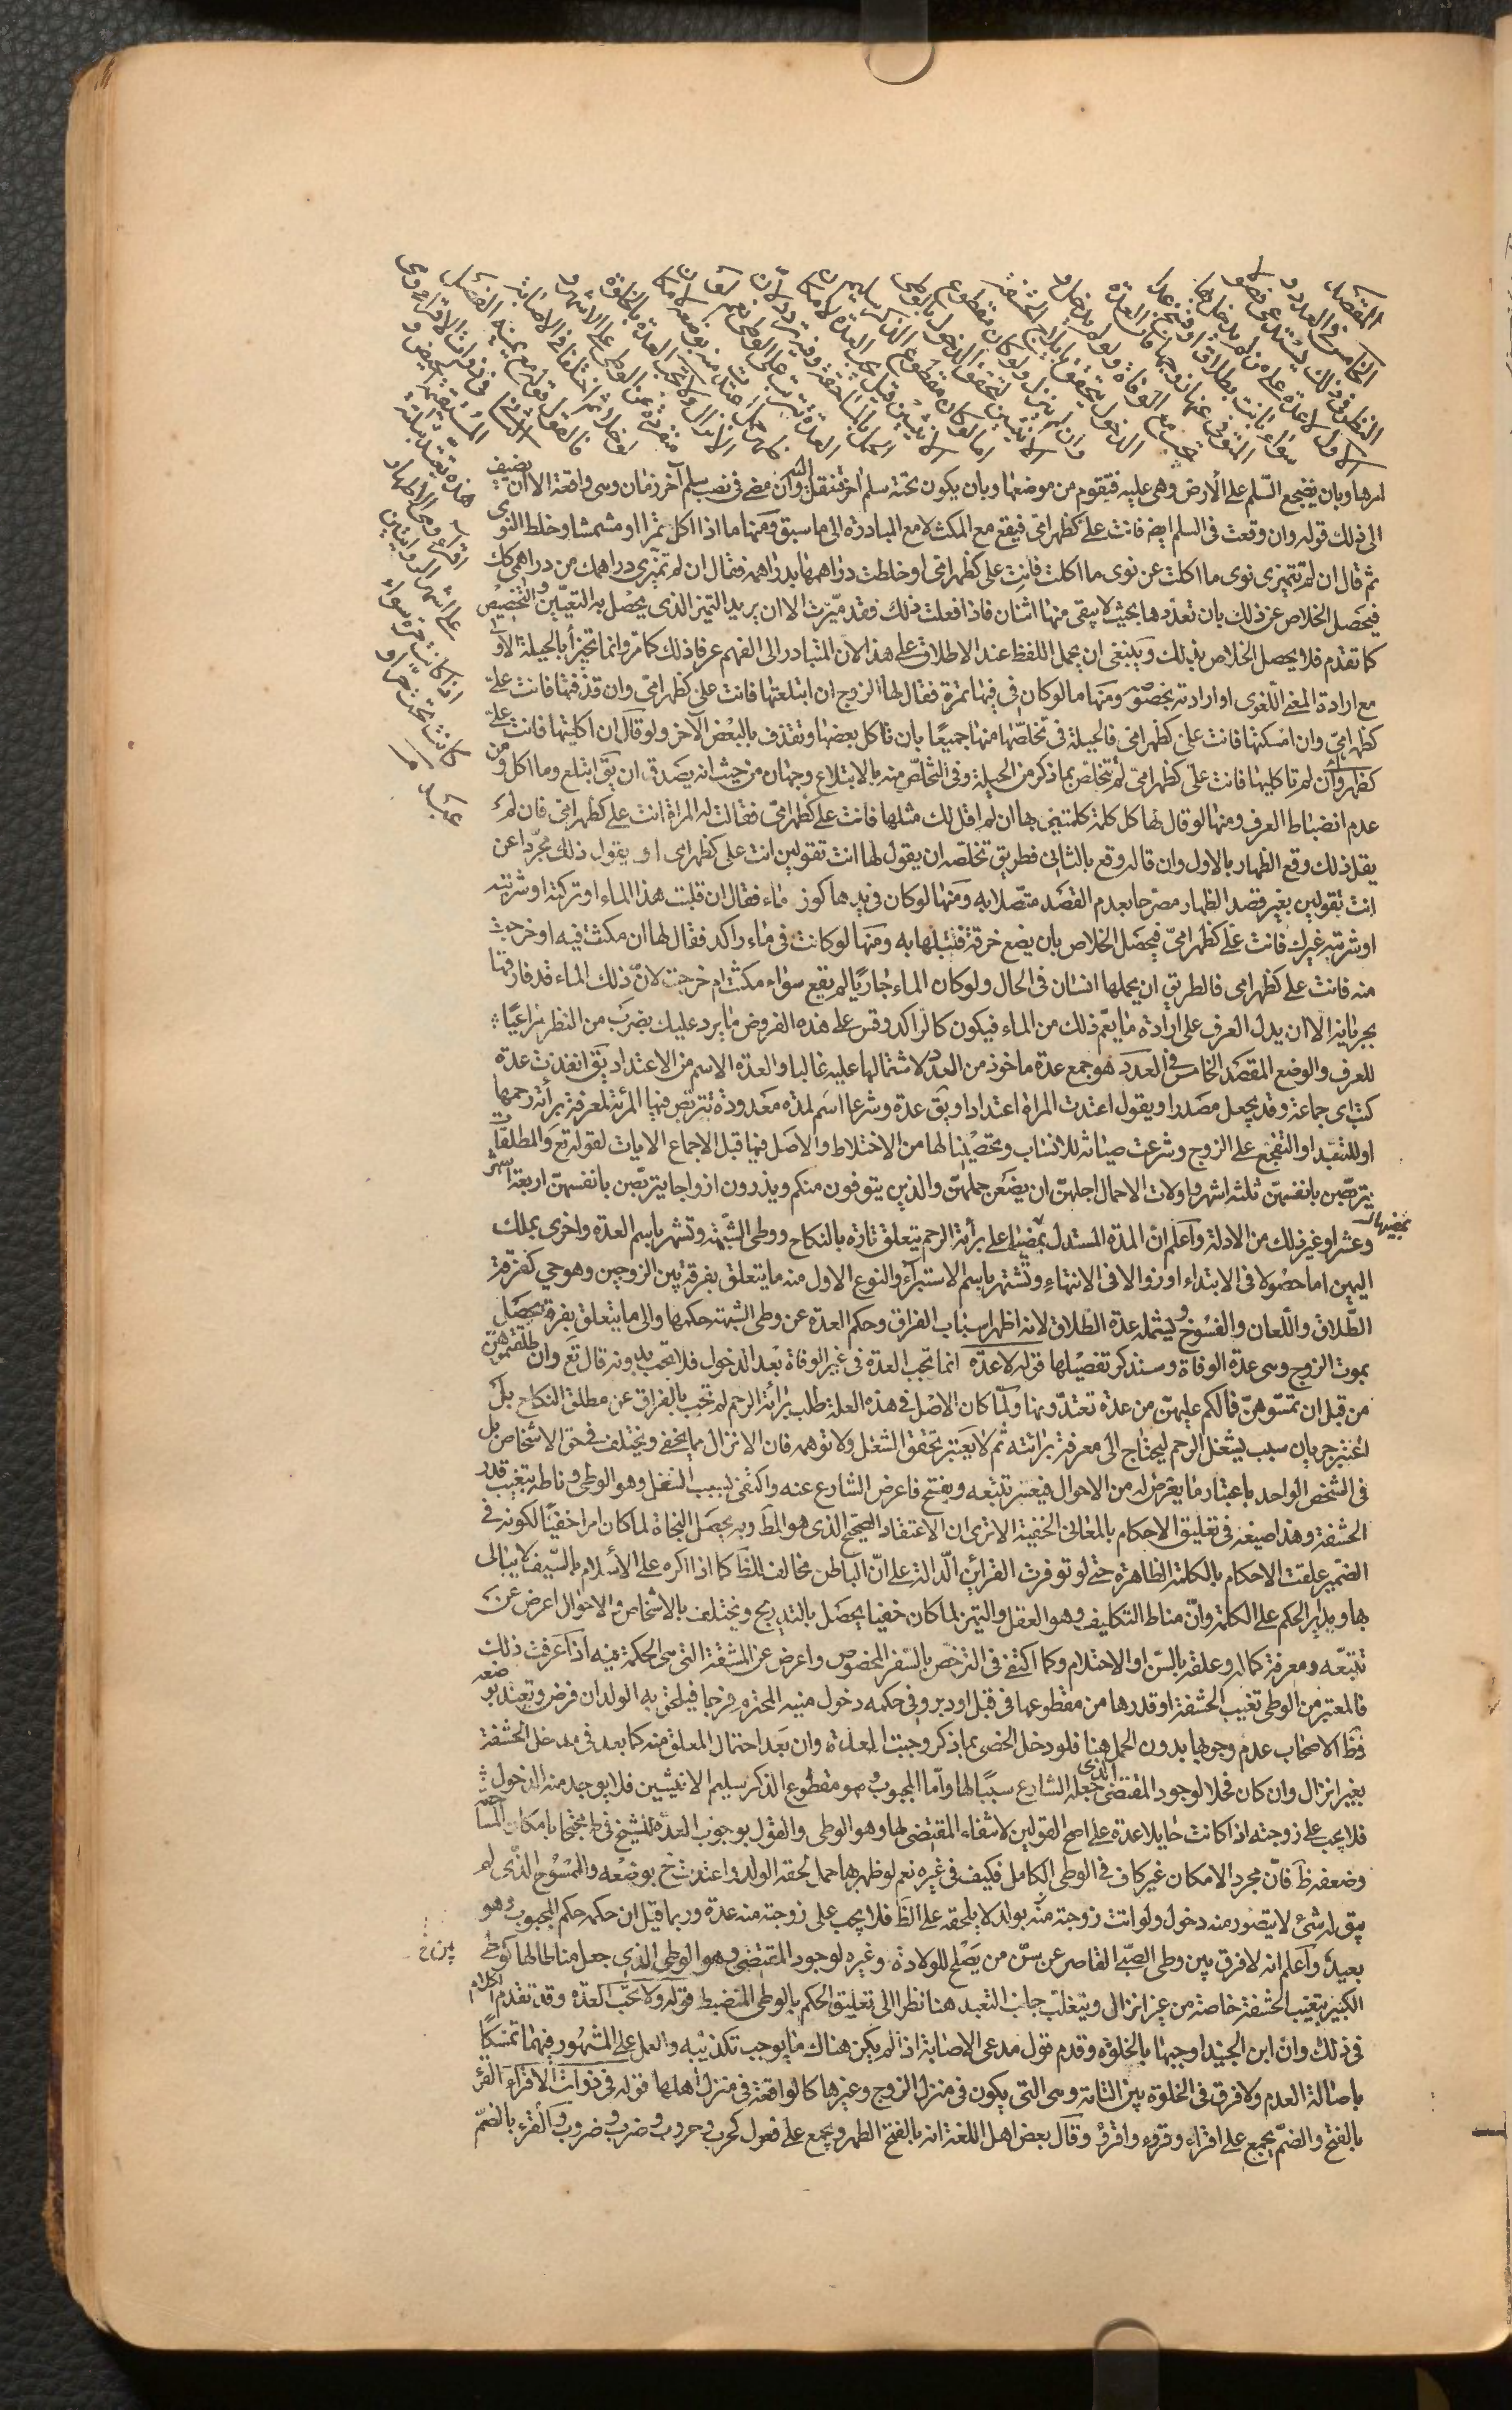 المقصد
الخامس في العدد و
النظر في ذلك يستدعي فصولا
الاول لا عدة على من لم يدخل بها
سواء بانت بطلاق او فسخ عدا
المتوفى عنها زوجها فان العدة
تجب مع الوفاة ولو لم يدخل و
الدخول يتحقق بايلاج الحشفة
وان لم ينزل ولو كان مقطوع
الانثيين لتحقق الدخول بالوطي
اما لو كان مقطوع الذكر سليم
الانثيين قيل تجب العدة لامكان
الحمل بالمساحقة وفيه تردد لان
العدة تترتب على الوطي نعم لو
ظهر حمل اعتدت منه بوضعه لامكان
الانزال ولا تجب العدة بالخلوة
منفردة عن الوطي على الاشهر و
لو خلا ثم اختلفا في الاصابة
فالقول قوله مع يمينه الفصل
الثاني في ذوات الاقراء وهي
المستقيمة الحيض و
هذه تعتد بثلاثة
اقراء وهي الاطهار
على اشهر الروايتين
اذا كانت حرة سواء
كانت تحت حر او
عبد
امرها وبان يضجع السلم على الأرض وهي عليه فيقوم من موضعها وبان يكون بحنبه سلم اخر فتنتقل اليه وان مضى في نصب سلم آخر زمان وهي واقفة الا ان يضيف
الى ذلك قوله وان وقعت في السلم ايضه فانت على كظهر امي فيقع مع المكث لا مع المبادرة الى ما سبق ومنها ما اذا اكل تمرا او مشمشا وخلط النوى
ثم قال ان لم تتميزي نوى ما اكلت عن نوى ما اكلت فانت على كظهر امي او خلطت دراهمها بدراهمه فقال ان لم تميزي دراهمك من دراهمي كك
فيحصل الخلاص عن ذلك بان تعددها بحيث لا يبقى منها اثنان فاذا فعلت ذلك فقد ميزت الا ان يريد التميز الذي يحصل به التعيين والتخصيص
كما تقدم فلا يحصل الخلاص بذلك وينبغي ان يحمل اللفظ عند الاطلاق على هذا لان المتبادر الى الفهم عرفا ذلك كما مر وانما تجتزأ بالحيلة الاولى
مع ارادة المعنى اللغوي او ارادته بخصوصه ومنها ما لو كان في فيها تمرة فقال لها الزوج ان ابتلعتها فانت على كظهر امي وان قذفتها فانت على
كظهر امي وان امسكتها فانت على كظهر امي فالحيلة في تخلصها منها جميعا بان تاكل بعضها وتقذف بالبعض الآخر ولو قال ان اكلتها فانت على
كظهر وان لم تاكليها فانت على كظهر امي لم تتخلص بما ذكر من الحيلة وفي التخلص منه بالابتلاع وجهان من حيث انه يصدق ان يق ابتلع وما اكل ومن
عدم انضباط العرف ومنها لو قال لها كل كلمة كلمتيني بها ان لم اقل لك مثلها فانت على كظهر امي فقالت له المراة انت على كظهر امي فان لم
يقل ذلك وقع الظهار بالاول وان قاله وقع بالثاني فطريق تخلصه ان يقول لها انت تقولين انت على كظهر امي او يقول ذلك مجردا عن
انت تقولين بغير قصد الظهار مصرحا بعدم القصد متصلا به ومنها لو كان في يدها كوز ماء فقال ان قلبت هذا الماء او تركته او شربته
او شربه غيرك فانت على كظهر امي فيحصل الخلاص بان يضع خرقة فتبلها به ومنها لو كانت في ماء راكد فقال لها ان مكثت فيه او خرجت
منه فانت على كظهر امي فالطريق ان يحملها انسان في الحال ولو كان الماء جاريا لم يقع سواء مكثت ام خرجت لان ذلك الماء قد فارقها
بجريانه الا ان يدل العرف على ارادة ما يعم ذلك من الماء فيكون كالراكد وقس على هذه الفروض ما يرد عليك بضرب من النظر مراعيا
للعرف والوضع المقصد الخامس في العدد هو جمع عدة ماخوذ من العدد لاشتمالها عليه غالبا والعدة الاسم من الاعتداد يق انفذت عدة
كتب اى جماعة وقد يجعل مصدرا ويقول اعتدت المراة اعتدادا ويق عدة وشرعا اسم لمدة معدودة تتربص فيها المرئة لمعرفة برأئة رحمها
او للتعبد او التفجع على الزوج وشرعت صيانة للانساب وتحصينا لها من الاختلاط والاصل فيها قبل الاجماع الايات لقوله تع والمطلقات
يتربصن بانفسهن ثلثة اشهر واولات الاحمال اجلهن ان يضعن حملهن والذين يتوفون منكم ويذرون ازواجا يتربصن بانفسهن اربعة اشهر
وعشرا وغير ذلك من الادلة واعلم ان المدة المستدل بمضيها على برأئة الرحم يتعلق تارة بالنكاح ووطي الشبهة وتشهر باسم العدة واخرى بملك
اليمين اما حصولا في الابتداء او زوالا في الانتهاء وتشتهر باسم الاستبرأء والنوع الاول منه ما يتعلق بفرقة بين الزوجين وهو حي كفرقة
الطلاق واللعان والفسوخ ويشمله عدة الطلاق لانه اظهر اسباب الفراق وحكم العدة عن وطى الشبهة حكمها والى ما يتعلق بفرقة تحصل
بموت الزوج وهي عدة الوفاة وسنذكر تفصيلها قوله لا عدة انما تجب العدة في غير الوفاة بعد الدخول فلا تجب بدونه قال تع وان طلقتموهن
من قبل ان تمسوهن فما لكم عليهن من عدة تعتدونها ولما كان الاصل في هذه العلة طلب برائة الرحم لم تجب بالفراق عن مطلق النكاح بل
اعتبر جريان سبب يشغل الرحم ليحتاج الى معرفة برائته ثم لا يعتبر تحقق الشغل ولا توهمه فان الانزال مما يخفى ويختلف في حق الاشخاص بل
في الشخص الواحد باعتبار ما يعرض له من الاحوال فيعسر تتبعه ويقبح فاعرض الشارع عنه واكتفى بسبب الشغل وهو الوطي وناطه بتغييب قدر
الحشفة وهذا صيغه في تعليق الاحكام بالمعاني الخفية الا ترى ان الاعتقاد الصحيح الذي هو المط وبه يحصل النجاة لما كان امرا خفيا لكونه في
الضمير علقت الاحكام بالكلمة الظاهرة حتى لو توفرت القرائن الدالة على ان الباطن مخالف للظ كما اذا اكره على الأسلام بالسيف لا يبالى
بها ويدار الحكم على الكلمة وان مناط التكليف وهو العقل والتميز لما كان خفيا يحصل بالتدريج ويختلف بالاشخاص والاحوال اعرض عن
تتبعه ومعرفة كماله وعلقه بالسن او الاحتلام وكما اكتفى في الترخص بالسفر المخصوص واعرض عن المشقة التي هي الحكمة فيه اذا عرفت ذلك
فالمعتبر من الوطي تغيب الحشفة او قدرها من مقطوعها في قبل او دبر وفي حكمه دخول منيه المحترم فرجا فيلحق به الولد ان فرض وتعتد بوضعه
وظ الاصحاب عدم وجوبها بدون الحمل هنا فلو دخل الخصي بما ذكر وجبت العدة وان بعد احتمال المعلق منه كما بعد في مدخل الحشفة
بغير انزال وان كان فحلا لوجود المقتضى الذي جعله الشارع سببا لها واما المجبوب وهو مقطوع الذكر سليم الانثيين فلا يوجد منه الدخول
فلا يجب على زوجته اذا كانت حايلا عدة على اصح القولين لانتفاء المقتضى لها وهو الوطي والقول بوجوب العدة للشيخ في ط محتجا بامكان المساحقة
وضعفه ظ فان مجرد الامكان غير كاف في الوطي الكامل فكيف في غيره نعم لو ظهر بها حمل لحقه الولد واعتدت ح بوضعه والممسوح الذي لم
يبق له شئ لا يتصور منه دخول ولو اتت زوجته منه بولد لا يلحقه على الظ فلا يجب على زوجته منه عدة وربما قيل ان حكمه حكم المجبوب وهو
بعيد واعلم انه لا فرق بين وطي الصبي القاصر عن سن من يصلح للولادة وغيره لوجود المقتضى وهو الوطي الذي جعل مناطا لها كوطى
الكبير بتغيب الحشفة خاصة من غير انزال ويتغلب جانب التعبد هنا نظرا الى تعليق الحكم بالوطي المنضبط قوله ولا تجب العدة وقد تقدم الكلام
في ذلك وان ابن الجنيد اوجبها بالخلوة وقدم قول مدعى الاصابة اذا لم يكن هناك ما يوجب تكذيبه والعمل على المشهور فيهما تمسكا
باصالة العدم ولا فرق في الخلوة بين التامة وهي التي يكون في منزل الزوج وغيرها كالواقعة في منزل اهلها قوله في ذوات الاقراء القرء
بالفتح والضم يجمع على اقراء وقروء واقرؤ وقال بعض اهل اللغة انه بالفتح الطهر ويجمع على فعول كحرب وحروب وضرب وضروب والقرء بالضم